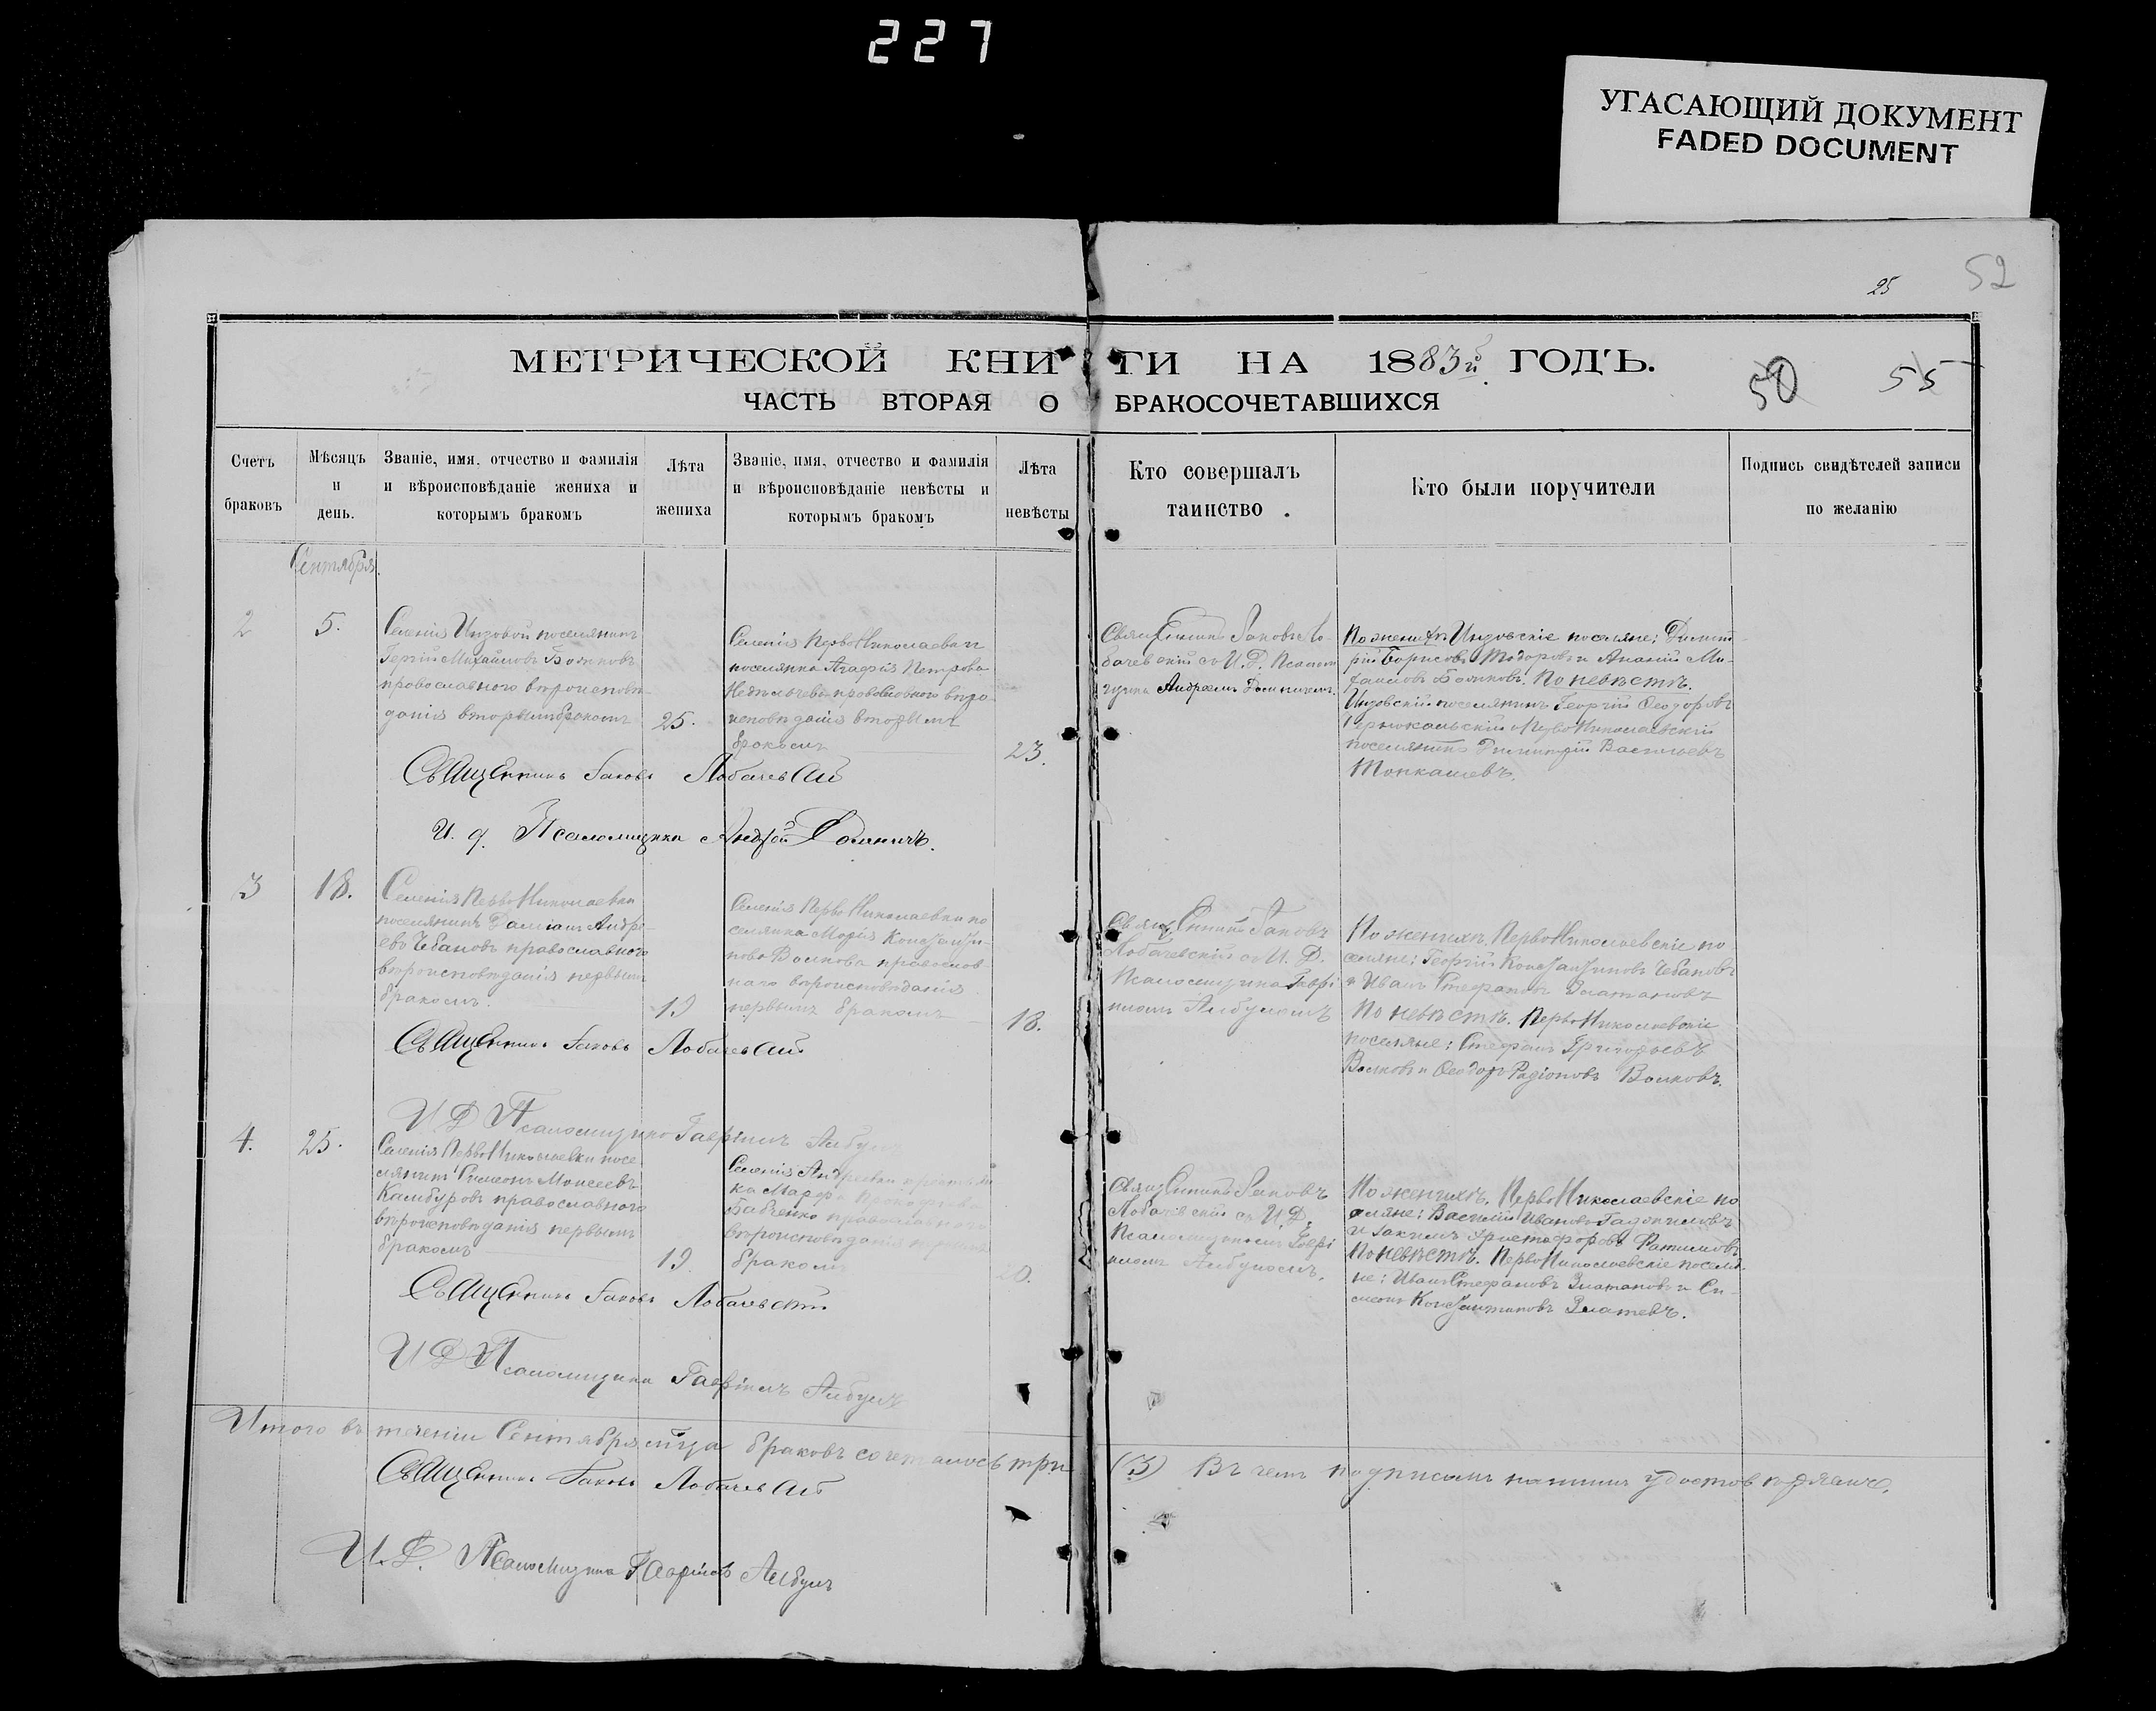 227
УГАСАЮЩИЙ ДОКУМЕНТ
FADED DOCUMENT
52
25
МЕТРИЧЕСКОЙ КНИГИ НА 1883й ГОДЪ.
50 55
ЧАСТЬ ВТОРАЯ О БРАКОСОЧЕТАВШИХСЯ
Счетъ
браковъ
Мѣсяцъ
и
день.
Званіе, имя, отчество и фамилія
и вѣроисповѣданіе жениха и
которымъ бракомъ
Лѣта
жениха
Званіе, имя, отчество и фамилія
и вѣроисповѣданіе невѣсты и
которымъ бракомъ
Лѣта
невѣсты
Кто совершалъ
таинство
Кто были поручители
Подпись свидѣтелей записи
по желанію
Сентября.
2
5.
Селенія Инзовой поселянинъ
Михайловъ
православнаго вѣроисповѣ-
данія вторымъ бракомъ
25.
Селенія ПервоНиколаевки
поселянка Агафія Петрова
православнаго вѣро
исповѣданія вторымъ
бракомъ
23.
Священникъ Іаковъ Ло-
бачевскій съ И. Д. Псалом
щика Андреемъ
По женихѣ Инзовскіе поселяне: Димит
рій Борисовъ Тодоровъ и Ананій Ми-
хаиловъ По невѣстѣ.
Инзовскій поселянинъ Георгій Ѳеодоровъ
и ПервоНиколаевскій
поселянинъ Димитрій Васильевъ
Священникъ Іаковъ Лобачевскій
И. д. Псаломщика Андрей
3
18.
Селенія ПервоНиколаевки
поселянинъ Даміанъ Андре-
евъ Чебановъ православнаго
вѣроисповѣданія первымъ
бракомъ.
19
Селенія ПервоНиколаевки по
селянка Марія Константи-
нова Волкова православ-
наго вѣроисповѣданія
первымъ бракомъ
18.
Священникъ Іаковъ
Лобачевскій съ И. Д.
Псаломщика Гаврі
иломъ
По женихѣ, ПервоНиколаевскіе по
селяне: Георгій Константиновъ Чебановъ
и Иванъ Стефановъ Златановъ
По невѣстѣ. ПервоНиколаевскіе
поселяне: Стефанъ Григорьевъ
Волковъ и Ѳеодоръ Родіоновъ Волковъ.
Священникъ Іаковъ Лобачевскій
И Д Псаломщика Гавріилъ
4.
25.
Селенія ПервоНиколаевки посе
лянинъ Симеонъ Моисеевъ
Камбуровъ православнаго
вѣроисповѣданія первымъ
бракомъ
19.
Селенія Андреевки
ка Марфа
Бабченко православнаго
вѣроисповѣданія первымъ
бракомъ
20.
Священникъ Іаковъ
Лобачевскій съ И. Д.
Псаломщикомъ Гаврі
иломъ
По женихѣ, ПервоНиколаевскіе по
селяне: Василій Ивановъ
и Іакимъ Христофоровъ
По невѣстѣ. ПервоНиколаевскіе поселя
не: Иванъ Стефановъ Златановъ и Си-
меонъ Константиновъ Златевъ.
Священникъ Іаковъ Лобачевскій
И Д Псаломщика Гавріилъ
Итого въ теченіи Сентября м-ца браковъ сочеталось три (3) Въ чемъ подписомъ нашимъ удостовѣряемъ.
Священникъ Іаковъ Лобачевскій
И. Д. Псаломщика Гавріилъ